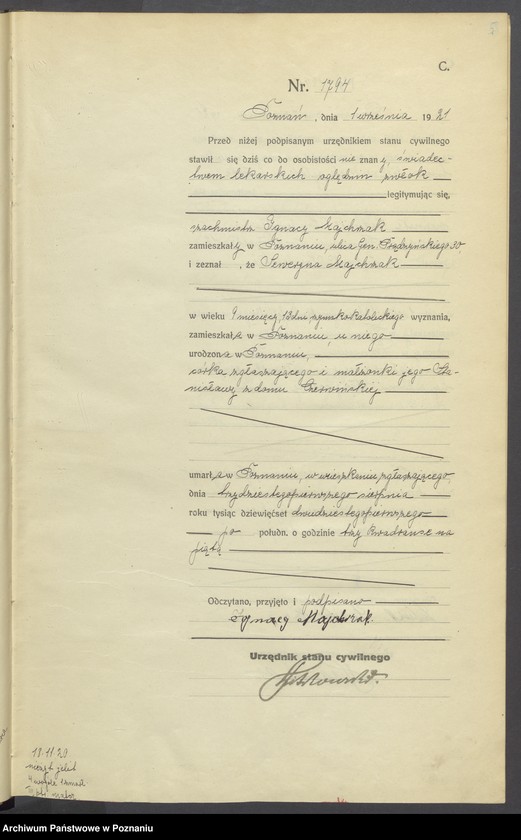 C.
Nr. 1794
Poznań, dnia 1 września 1921
Przed niżej podpisanym urzędnikiem stanu cywilnego
stawił się dziś co do osobistości nie znany, świadec-
twem lekarskich oględzin zwłok
legitymując się,
Ignacy Majchrzak
zamieszkały w Poznaniu, ulica Gen. Prądzyńskiego 30
i zeznał, że Seweryna Majchrzak
w wieku 9 miesięcy, 13 dni, rzymskokatolickiego wyznania,
zamieszkała w Poznaniu, u niego
urodzona w Poznaniu,
córka zgłaszającego i małżonki jego Sta-
nisławy z domu Czerwińskiej
umarła w Poznaniu, w mieszkaniu zgłaszającego,
dnia trzydziestegopierwszego sierpnia
roku tysiąc dziewięćset dwudziestegopierwszego
po połudn. o godzinie trzy kwadranse na
piątą
Odczytano, przyjęto i podpisano
Ignacy Majchrzak
Urzędnik stanu cywilnego
Archiwum Państwowe w Poznaniu